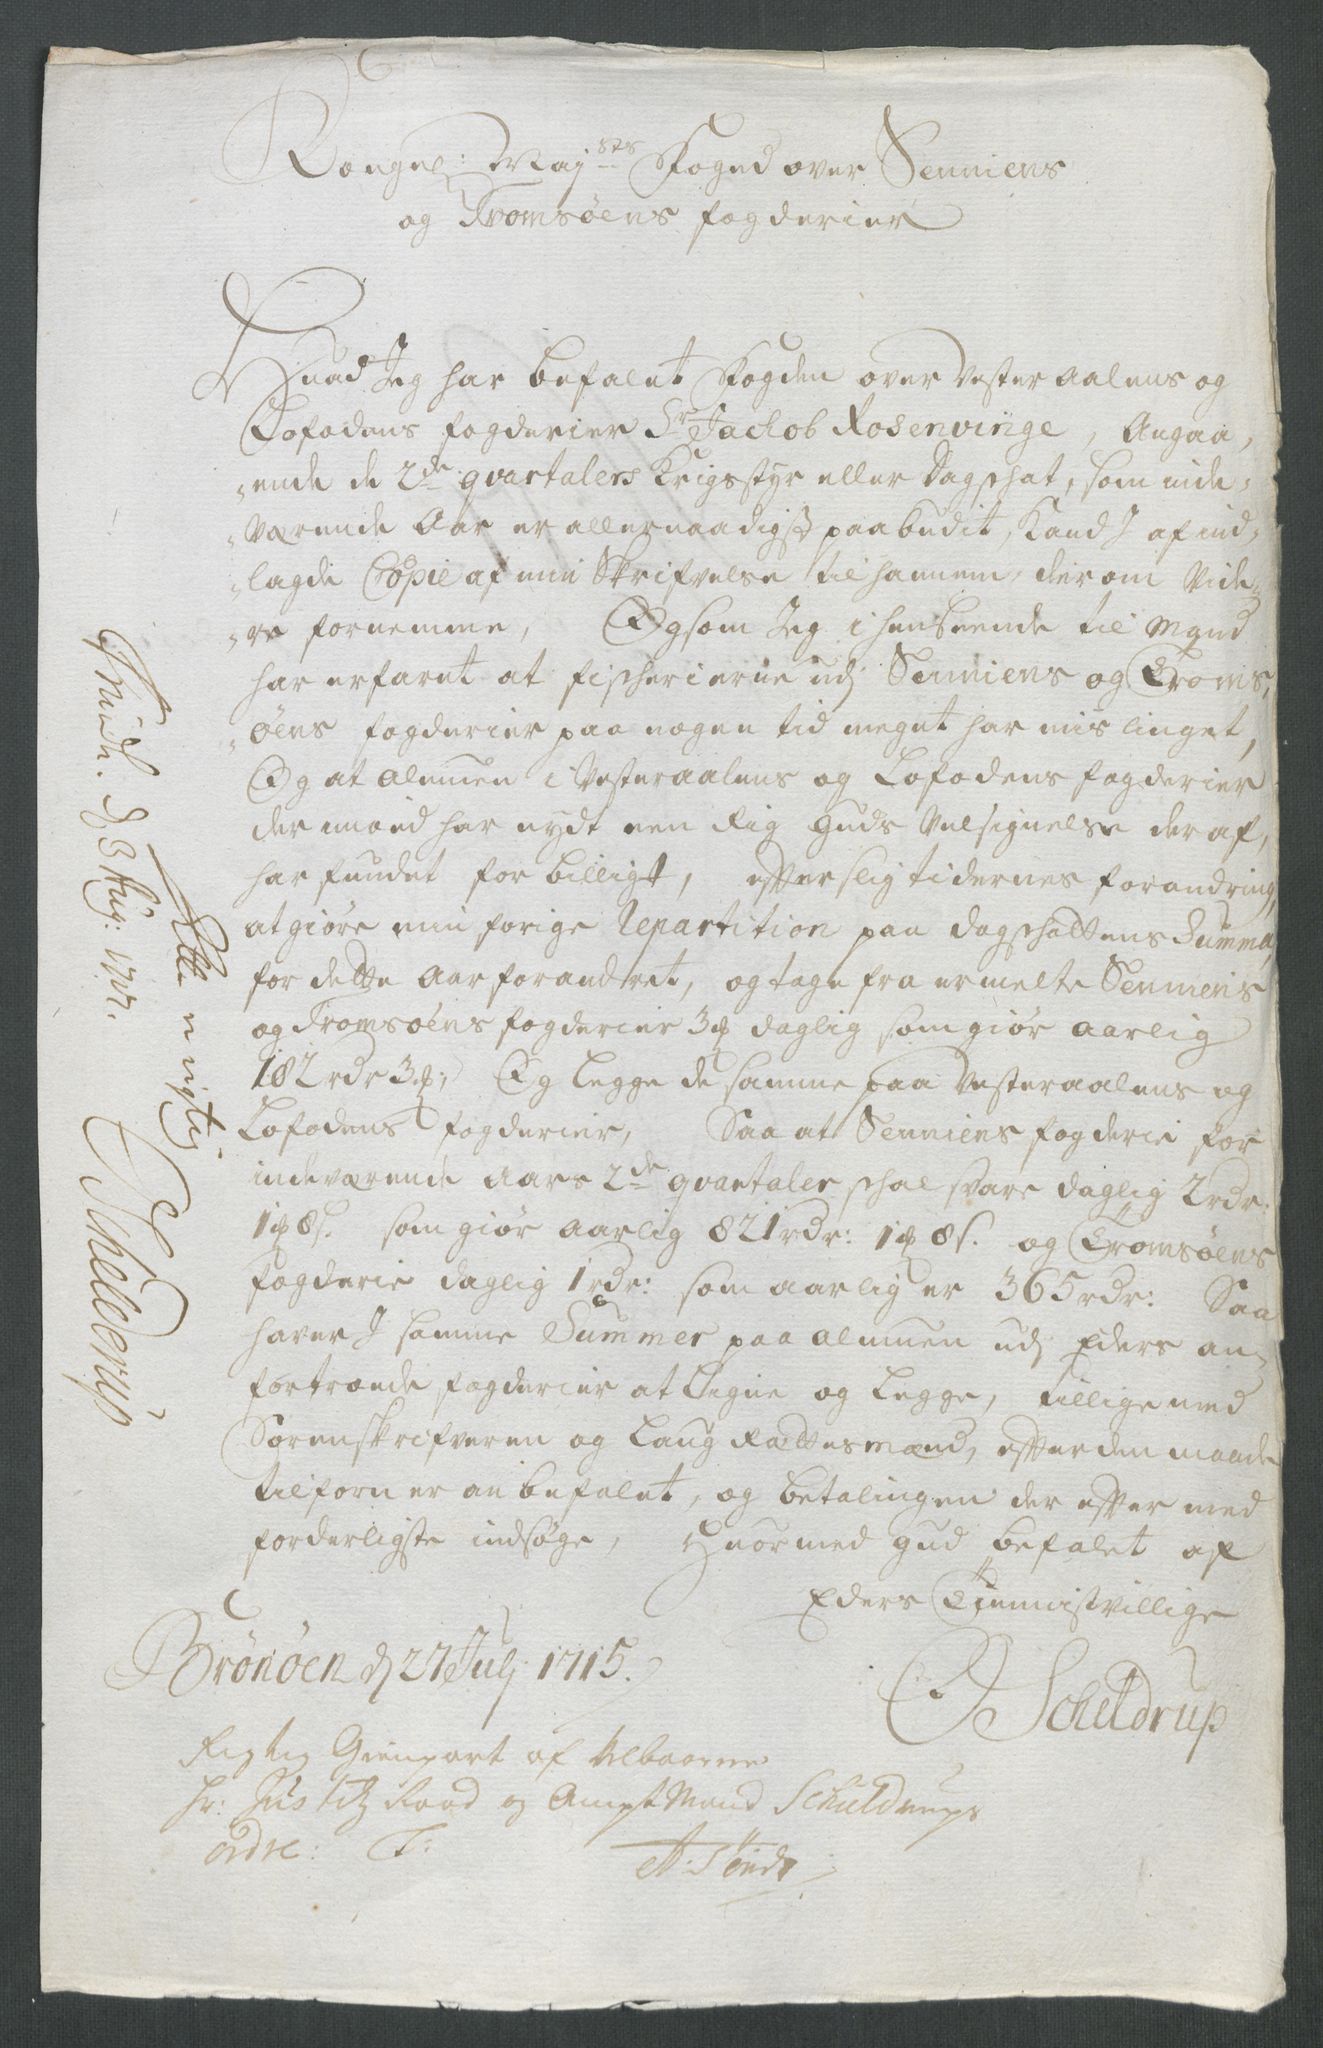 Kongel: Maj:sts Foged over Senniens
og Tromsøens fogderier
Hvad Jeg har befalet Fogden over Vesteraalens og
Lofodens fogderier Sr Jachob Rosenvinge, Angaa,
ende de 2de qvartalers Krigsstyr eller Dagschat, som inde,
værende Aar er allernaadigst paabudit, Kand I af ind,
lagde Copie af min Skrifvelse til hannem, derom Vide,
re fornemme, Og som Jeg i henseende til
har erfaret at fischerierne udj Senniens og Troms,
øens fogderier paa nogen tid meget har mislinget,
Og at almuen i Vesteraalens og Lofodens fogderier
der imoed har nydt een Rig Guds Velsignelse deraf,
har fundet for billigt, efter slig tidernes forandring,
at giøre min forige Repartition paa dagschattens Summa,
for dette Aar forandret, og tage fra ermelte Senniens
og Tromsøens fogderier 3 ꝑ daglig som giør aarlig
182 rdr 3 ꝑ, Og legge de samme paa Vesteraalens og
Lofodens fogderier, Saa at Senniens fogderie for
indeværende Aars 2de qvartaler schal svare daglig 2 rdr:
1 ꝑ 8 s. som giør aarlig 821 rdr: 1 ꝑ 8 s. og Tromsøens
fogderie daglig 1 rdr: som aarlig er 365 rdr: Saa
haver I samme Summer paa almuen udj Eders an,
fortroede fogderier at Ligne og Legge, tillige med
Sorenskrifveren og Laug Rættesmænd, efter den maade
tilforn er anbefalet, og betalingen der efter med
forderligste indsøge, Hvormed Gud befalet af
Eders Tienistvillige
Brønøen d 27 Julj 1715.
O Schieldrup
Rigtig Gienpart af Velbaarne
Hr: Justitz Raad og Ampt Mand Schieldrups
ordre: T:
A: Tønder
d 3 Aug: 1717.
Rette rigtig
Schielderup